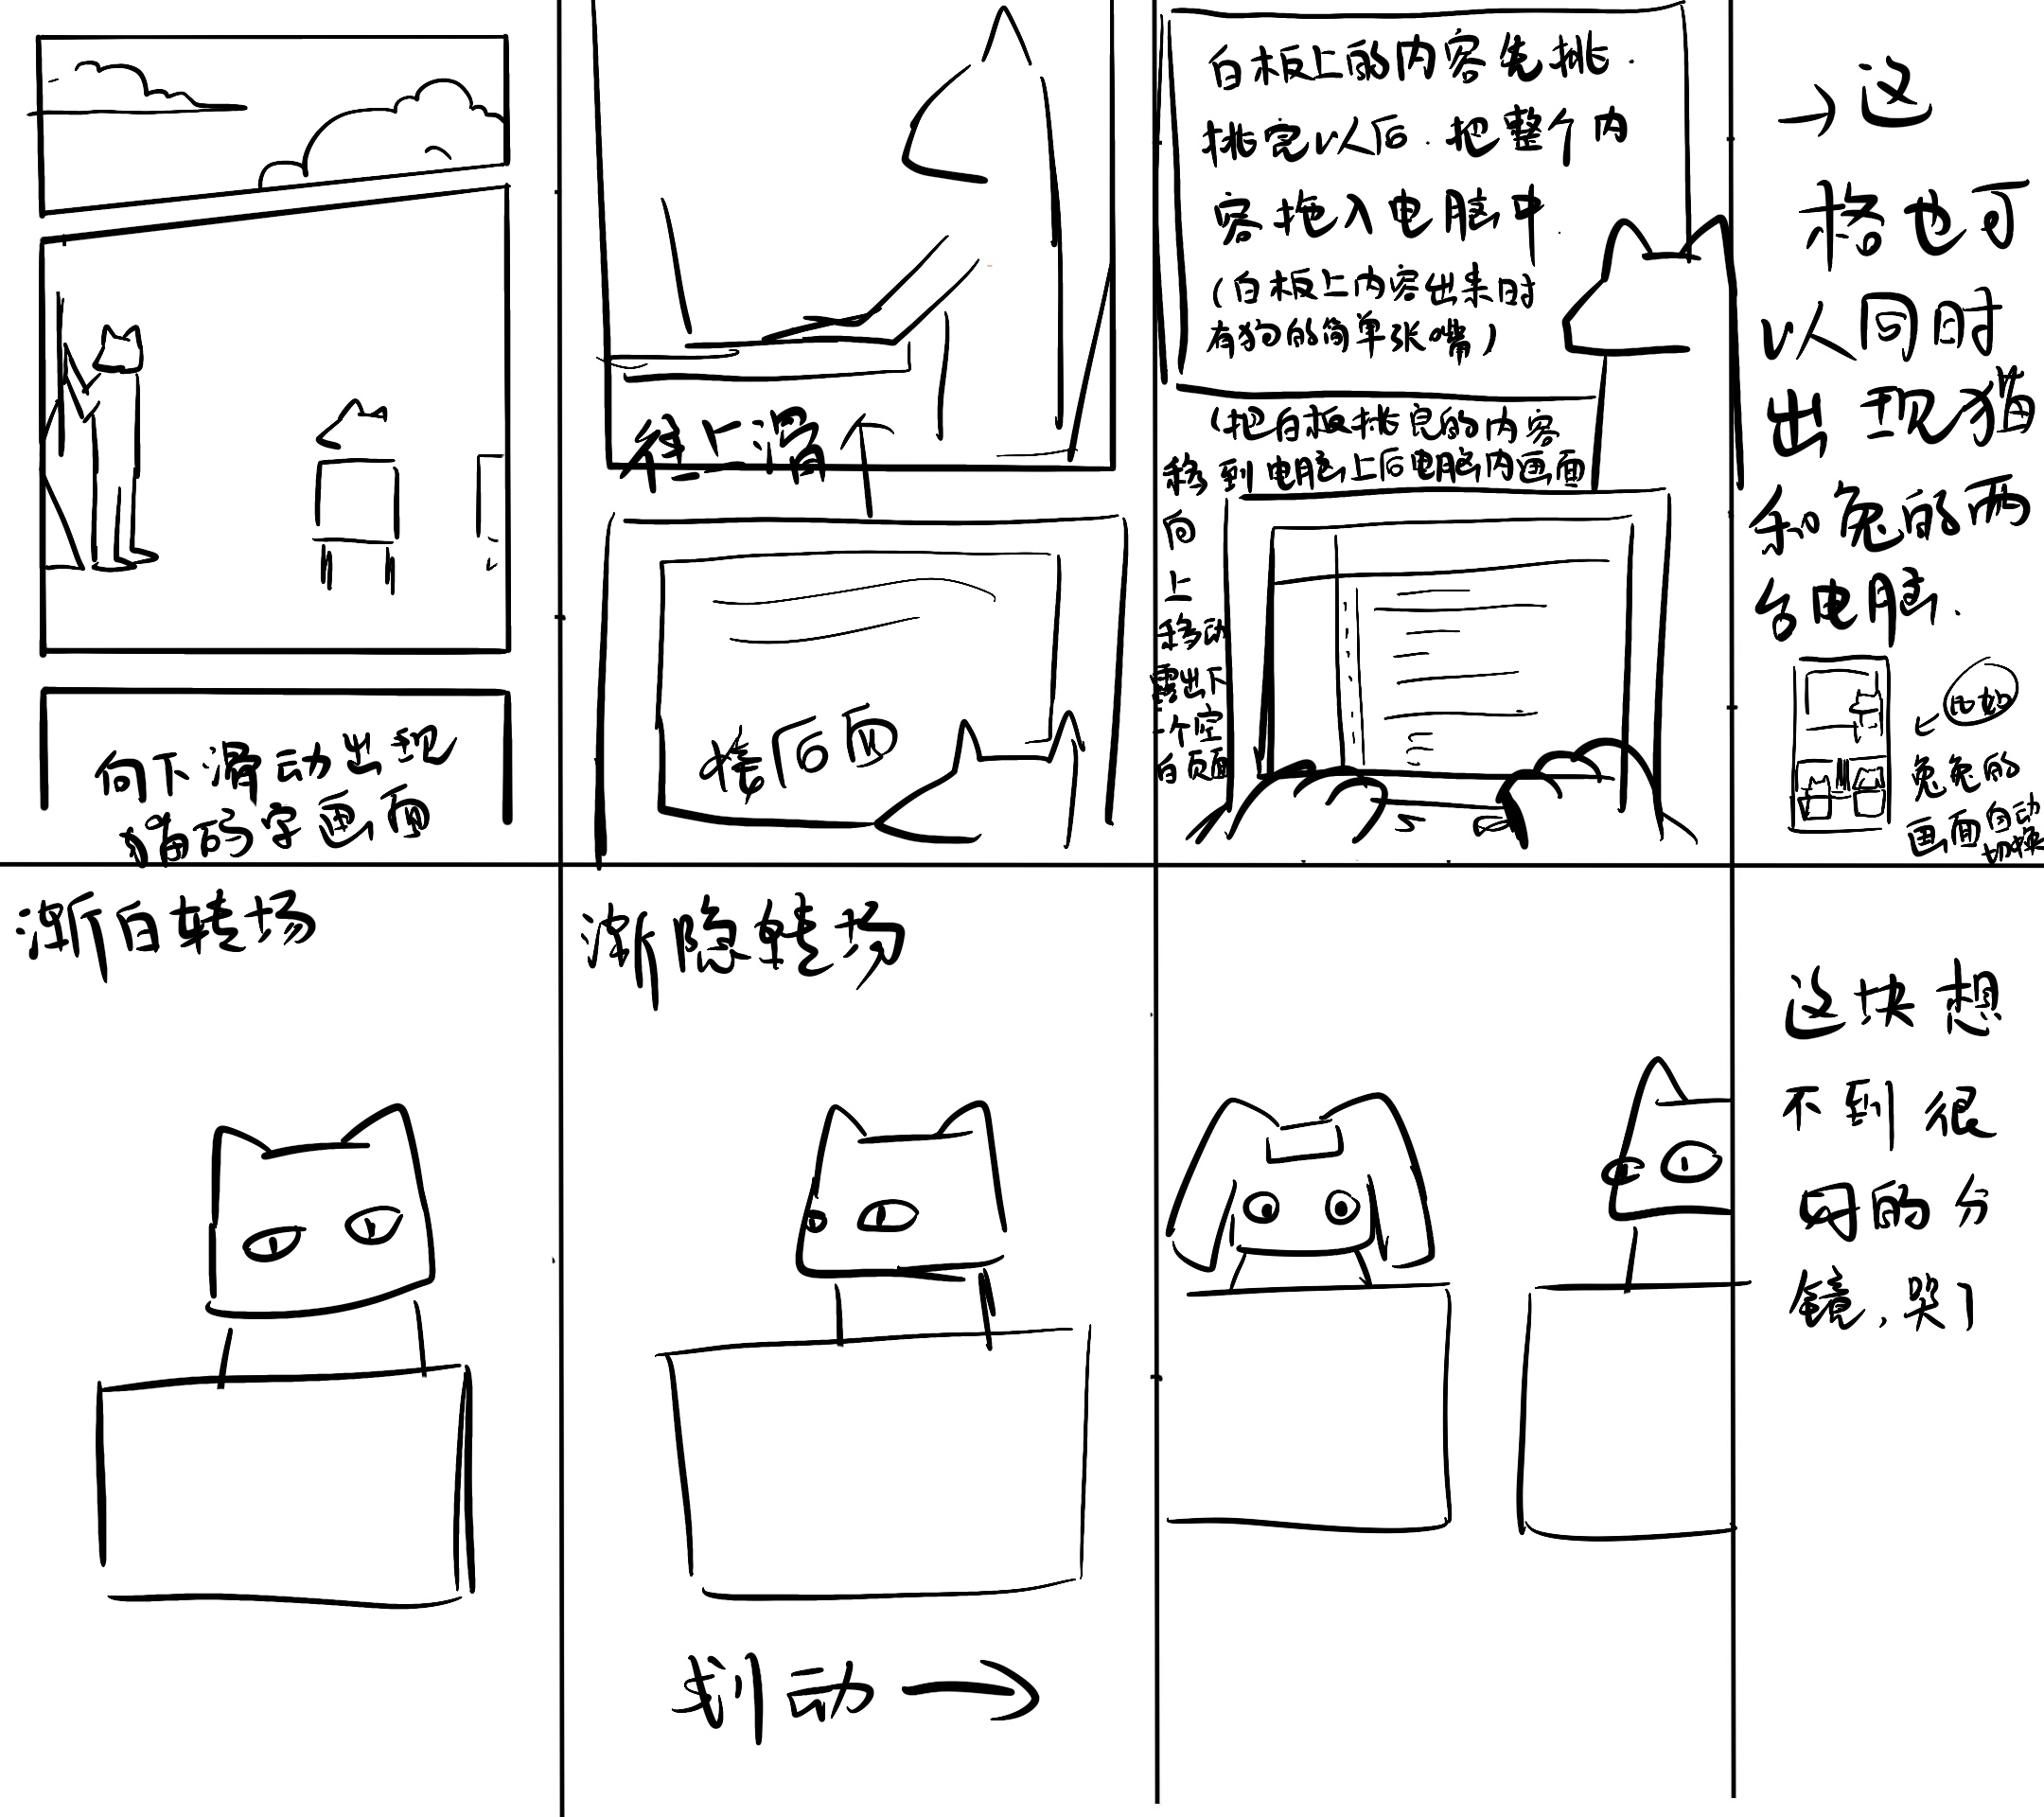 向下滑动出现
猫码字画面
往上滑
接后面
白板上的内容先挑.
挑完以后.把整个内
容拖入电脑中.
(白板上内容出来时
有狗的简单张嘴)
(把白板挑完的内容
移到电脑上后电脑内画面
向
上
移动
露出下
一个空
白页面
→这
格也可
以同时
出现猫
和兔的两
台电脑.
比如
兔兔的
画面自动
切换
渐白转场
渐隐转场
划动→
这块想
不到很
好的分
镜,哭了